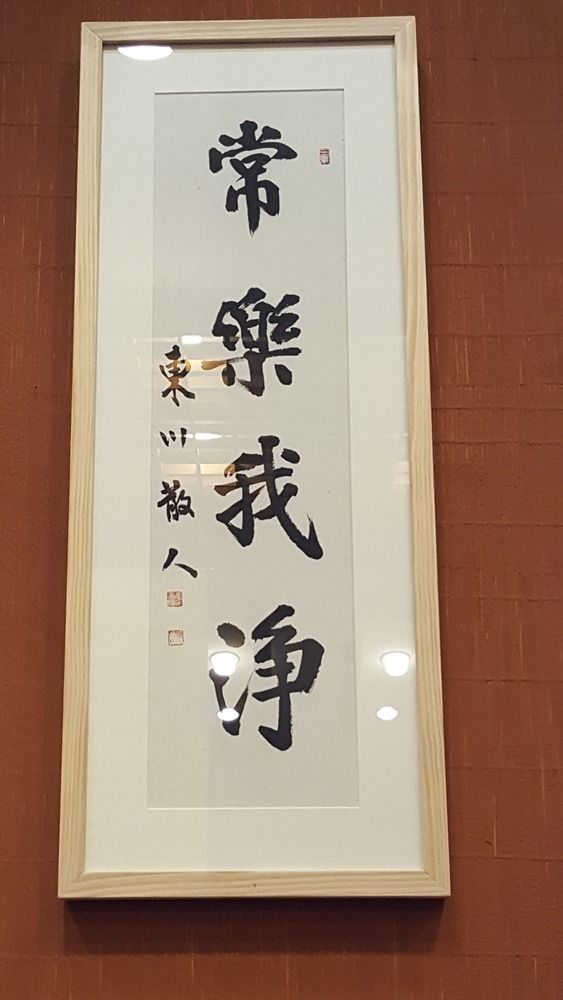 常樂我淨
東川散人